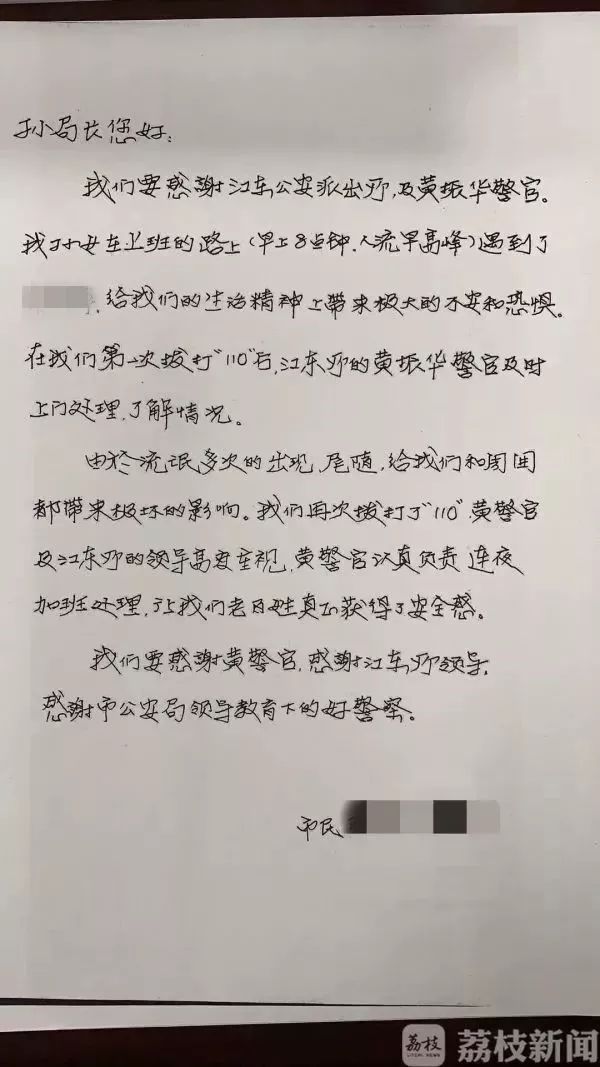 孙局长您好:
我们要感谢江东公安派出所,及黄振华警官。
我于小女在上班的路上(早上8点钟,人流早高峰)遇到了
,给我们的生活精神上带来极大的不安和恐惧。
在我们第一次拨打"110"后,江东所的黄振华警官及时
上门处理,了解情况。
由於流氓多次的出现,尾随,给我们和周围
都带来极坏的影响。我们再次拨打了"110",黄警官
及江东所的领导高度重视,黄警官认真负责 连夜
加班处理,让我们老百姓真正获得了安全感。
我们要感谢黄警官,感谢江东所领导,
感谢市公安局领导教育下的好警察。
市民
荔枝
LITCHI NEWS
荔枝新闻